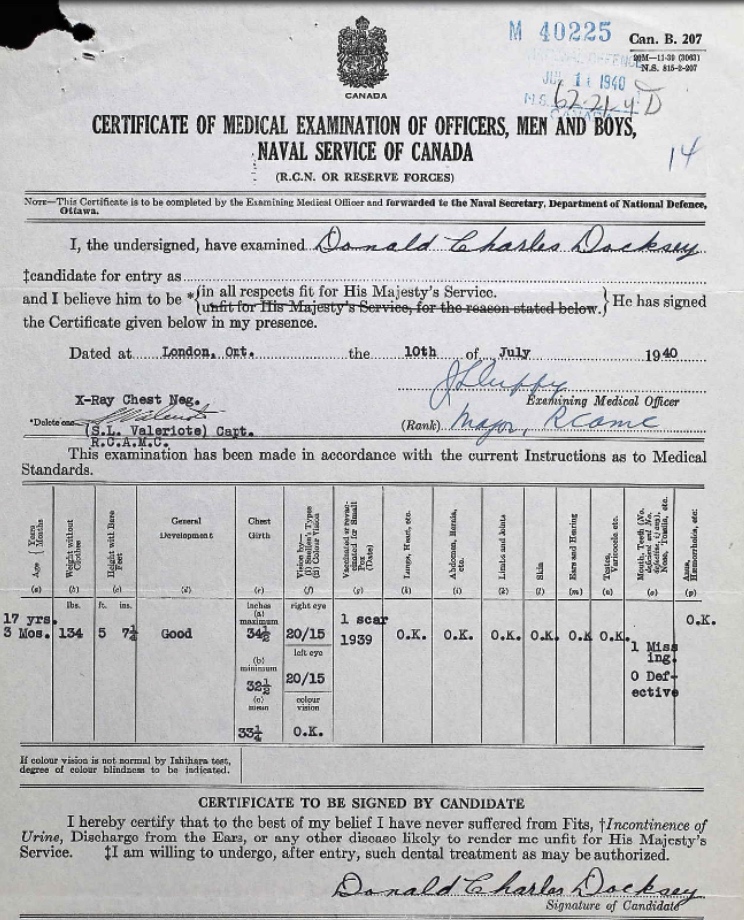 M 40225
Can. B. 207
20M—11-39 (3063)
N.S. 815-2-207
JUL 11 1940
62-21-4 D
CANADA
CERTIFICATE OF MEDICAL EXAMINATION OF OFFICERS, MEN AND BOYS,
NAVAL SERVICE OF CANADA
14
(R.C.N. OR RESERVE FORCES)
NOTE—This Certificate is to be completed by the Examining Medical Officer and forwarded to the Naval Secretary, Department of National Defence,
Ottawa.
I, the undersigned, have examined Donald Charles Docksey
‡candidate for entry as
and I believe him to be *{in all respects fit for His Majesty's Service.
{unfit for His Majesty's Service, for the reason stated below.} He has signed
the Certificate given below in my presence.
Dated at London, Ont. the 10th of July 1940
X-Ray Chest Neg.
Examining Medical Officer
*Delete one
(S.L. Valeriote) Capt.
(Rank) Major, RCAMC
R.C.A.M.C.
This examination has been made in accordance with the current Instructions as to Medical
Standards.
Age { Years Months (a)
Weight without Clothes (b)
Height with Bare Feet (c)
General Development (d)
Chest Girth (e)
Vision by— (i) Snellen's Types (ii) Colour Vision (f)
Vaccinated or revaccinated for Small Pox (Date) (g)
Lungs, Heart, etc. (h)
Abdomen, Hernia, etc. (i)
Limbs and Joints (k)
Skin (l)
Ears and Hearing (m)
Testes, Varicocele etc. (n)
Mouth, Teeth (No. deficient and No. defective if any), Nose, Tonsils, etc. (o)
Anus, Hæmorrhoids, etc. (p)
lbs. ft. ins. inches right eye
(a)
17 yrs. maximum 1 scar O.K.
3 Mos. 134 5 7¼ Good 34½ 20/15 1939 O.K. O.K. O.K. O.K. O.K O.K.
left eye 1 Miss
(b) ing.
minimum 20/15 0 Def-
32½ ective
(c) colour
mean vision
33¼ O.K.
If colour vision is not normal by Ishihara test,
degree of colour blindness to be indicated.
CERTIFICATE TO BE SIGNED BY CANDIDATE
I hereby certify that to the best of my belief I have never suffered from Fits, †Incontinence of
Urine, Discharge from the Ears, or any other disease likely to render me unfit for His Majesty's
Service. ‡I am willing to undergo, after entry, such dental treatment as may be authorized.
Donald Charles Docksey
Signature of Candidate